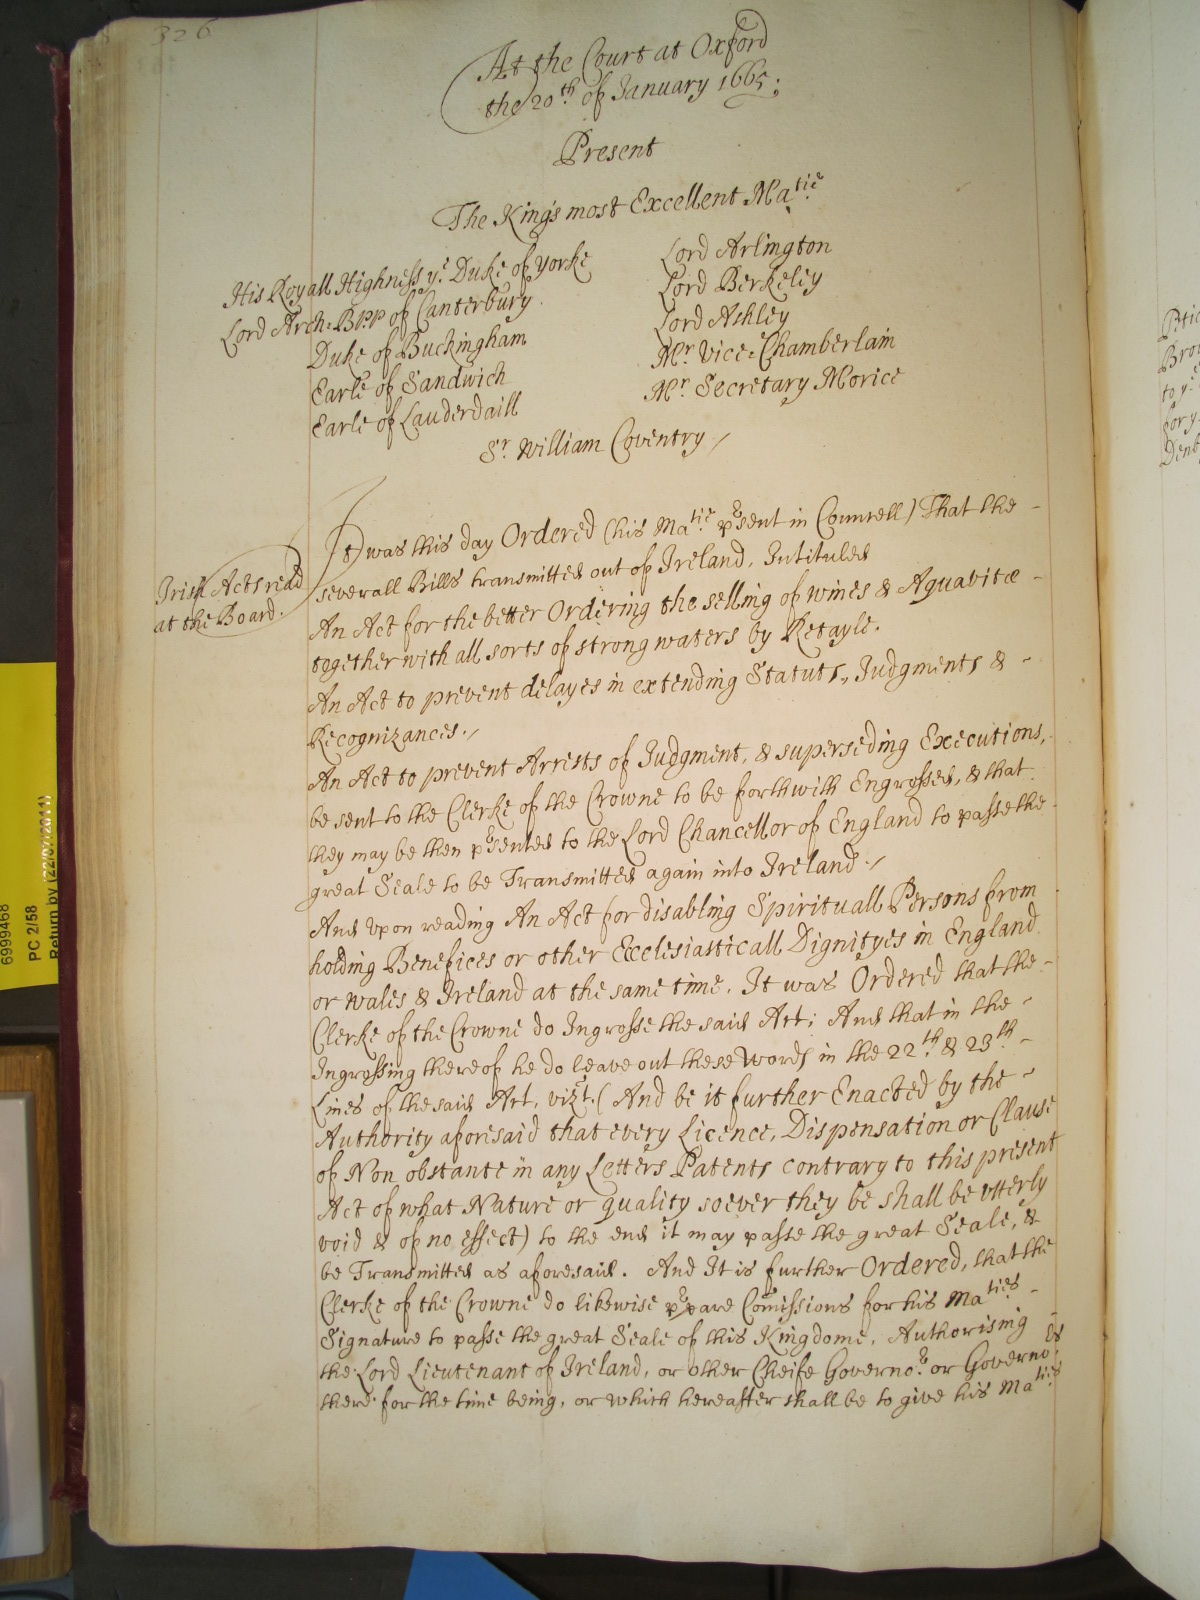 326
At the Court at Oxford
the 20th. of January 1665;
Present
The Kings most Excellent Matie.
His Royall Highness ye. Duke of Yorke
Lord Arch: Bpp of Canterbury.
Duke of Buckingham
Earle of Sandwich
Earle of Lauderdaill
Lord Arlington
Lord Berkeley
Lord Ashley
Mr. Vice=Chamberlain
Mr. Secretary Morice
Sr. William Coventry
Irish Acts read
at the Board.
It was this day Ordered (his Matie. present in Councell) That the
severall Bills transmitted out of Ireland, Intituled
An Act for the better Ordering the selling of wines & Aquavitæ
together with all sorts of strong waters by Retayle.
An Act to prevent delayes in extending Statuts, Judgments &
Recognizances.
An Act to prevent Arrests of Judgment, & superseding Executions,
be sent to the Clerke of the Crowne to be forthwith Engrossed, & that
they may be then presented to the Lord Chancellor of England to passe the
great Seale to be Transmitted again into Ireland.
And upon reading An Act for disabling Spirituall Persons from
holding Benefices or other Ecclesiasticall Dignityes in England
or Wales & Ireland at the same time, It was Ordered that the
Clerke of the Crowne do Ingrosse the said Act; And that in the
Ingrossing thereof he do leave out these Words in the 22th. & 23th
Lines of the said Act, vizt. (And be it further Enacted by the
Authority aforesaid that every Licence, Dispensation or Clause
of Non obstante in any Letters Patents contrary to this present
Act of what Nature or quality soever they be shall be utterly
void & of no effect) to the end it may passe the great Seale, &
be Transmitted as aforesaid. And It is further Ordered, that the
Clerke of the Crowne do likewise prepare Comissions for his Maties
Signature to passe the great Seale of this Kingdome, Authorising
the Lord Lieutenant of Ireland, or other Cheife Governor. or Governors
there for the time being, or which hereafter shall be to give his Maties
6999468
PC 2/58
Return by (22/07/2011)